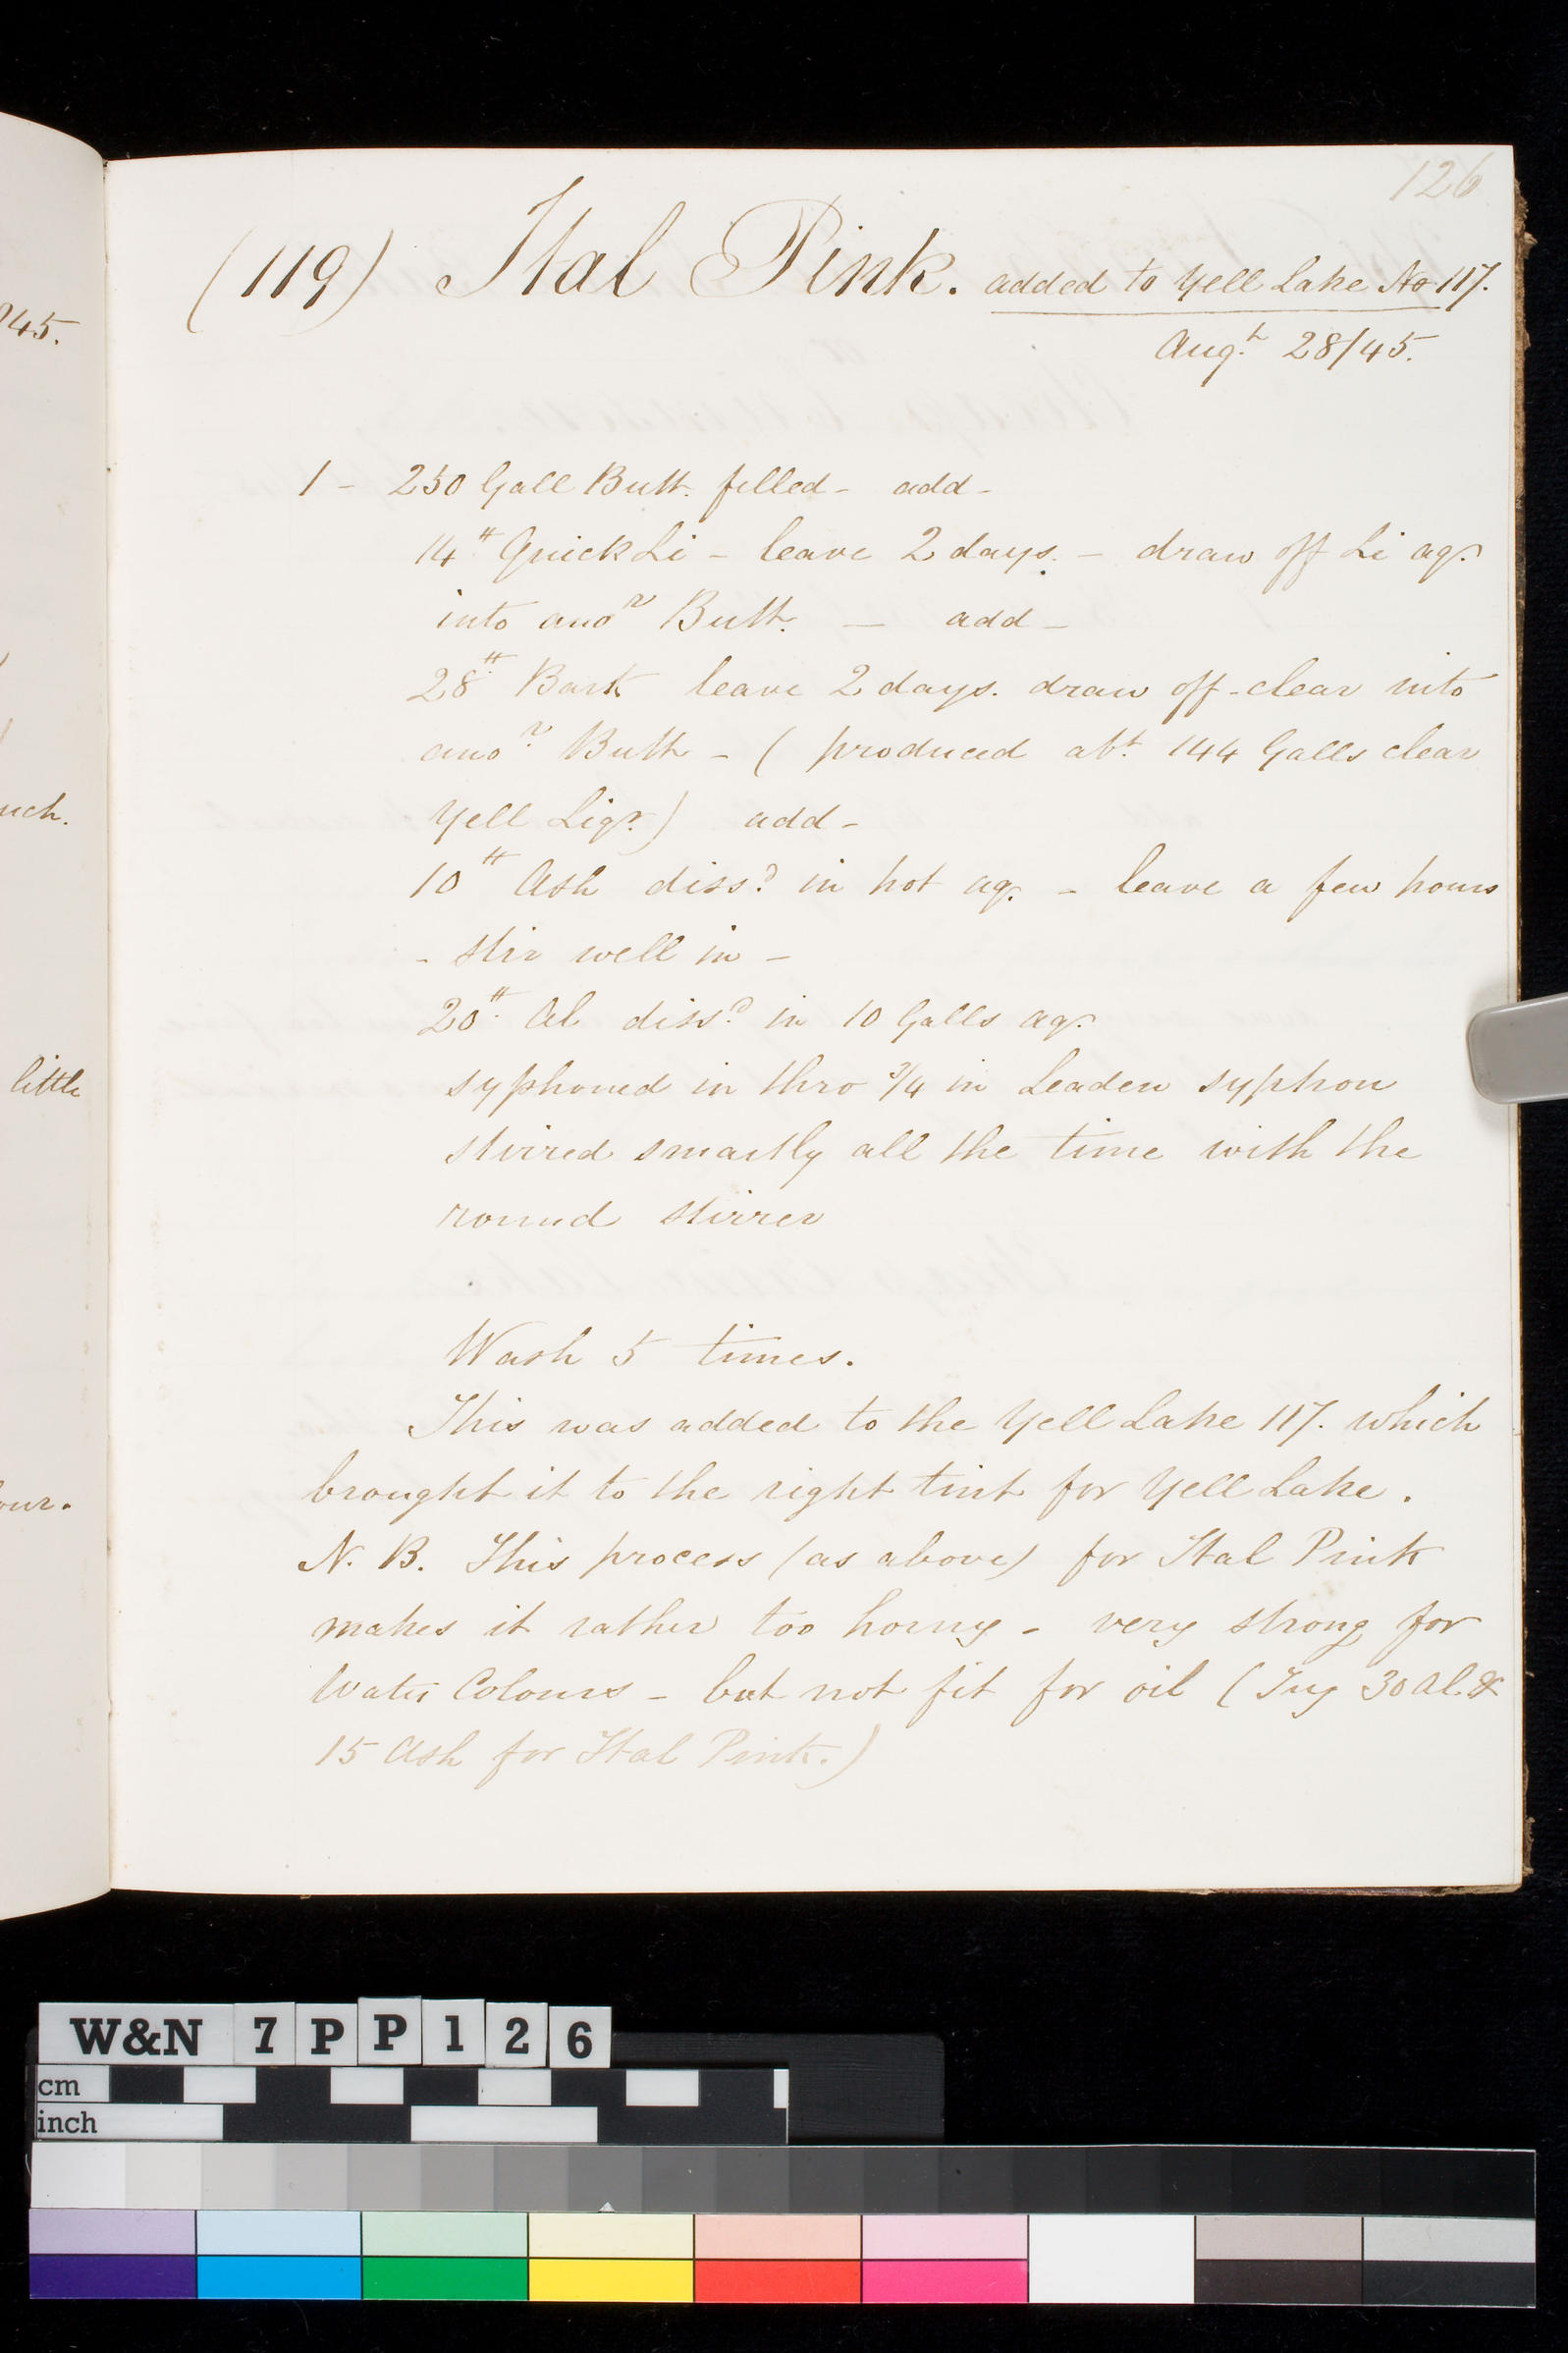 126
(119) Ital Pink. added to Yell Lake No 117.
Augt 28/45.
1 - 250 Gall Butt. filled - add -
14 # Quick Li - leave 2 days. - draw off Li aq.
into anor Butt. — add -
28 # Bark leave 2 days. draw off - clear into
anor Butt - ( produced abt 144 Galls clear
Yell Liqr.) add -
10 # Ash dissd in hot aq. - leave a few hours
- stir well in -
20 # Al dissd in 10 Galls aq.
syphoned in thro 3/4 in Leaden syphon
stirred smartly all the time with the
round stirrer
Wash 5 times.
This was added to the Yell Lake 117. which
brought it to the right tint for Yell Lake.
N. B. This process (as above) for Ital Pink
makes it rather too horny - very strong for
Water Colours - but not fit for oil (Try 30 Al. &
15 Ash for Ital Pink.)
945.
uch.
little
our.
W&N 7PP126
cm
inch